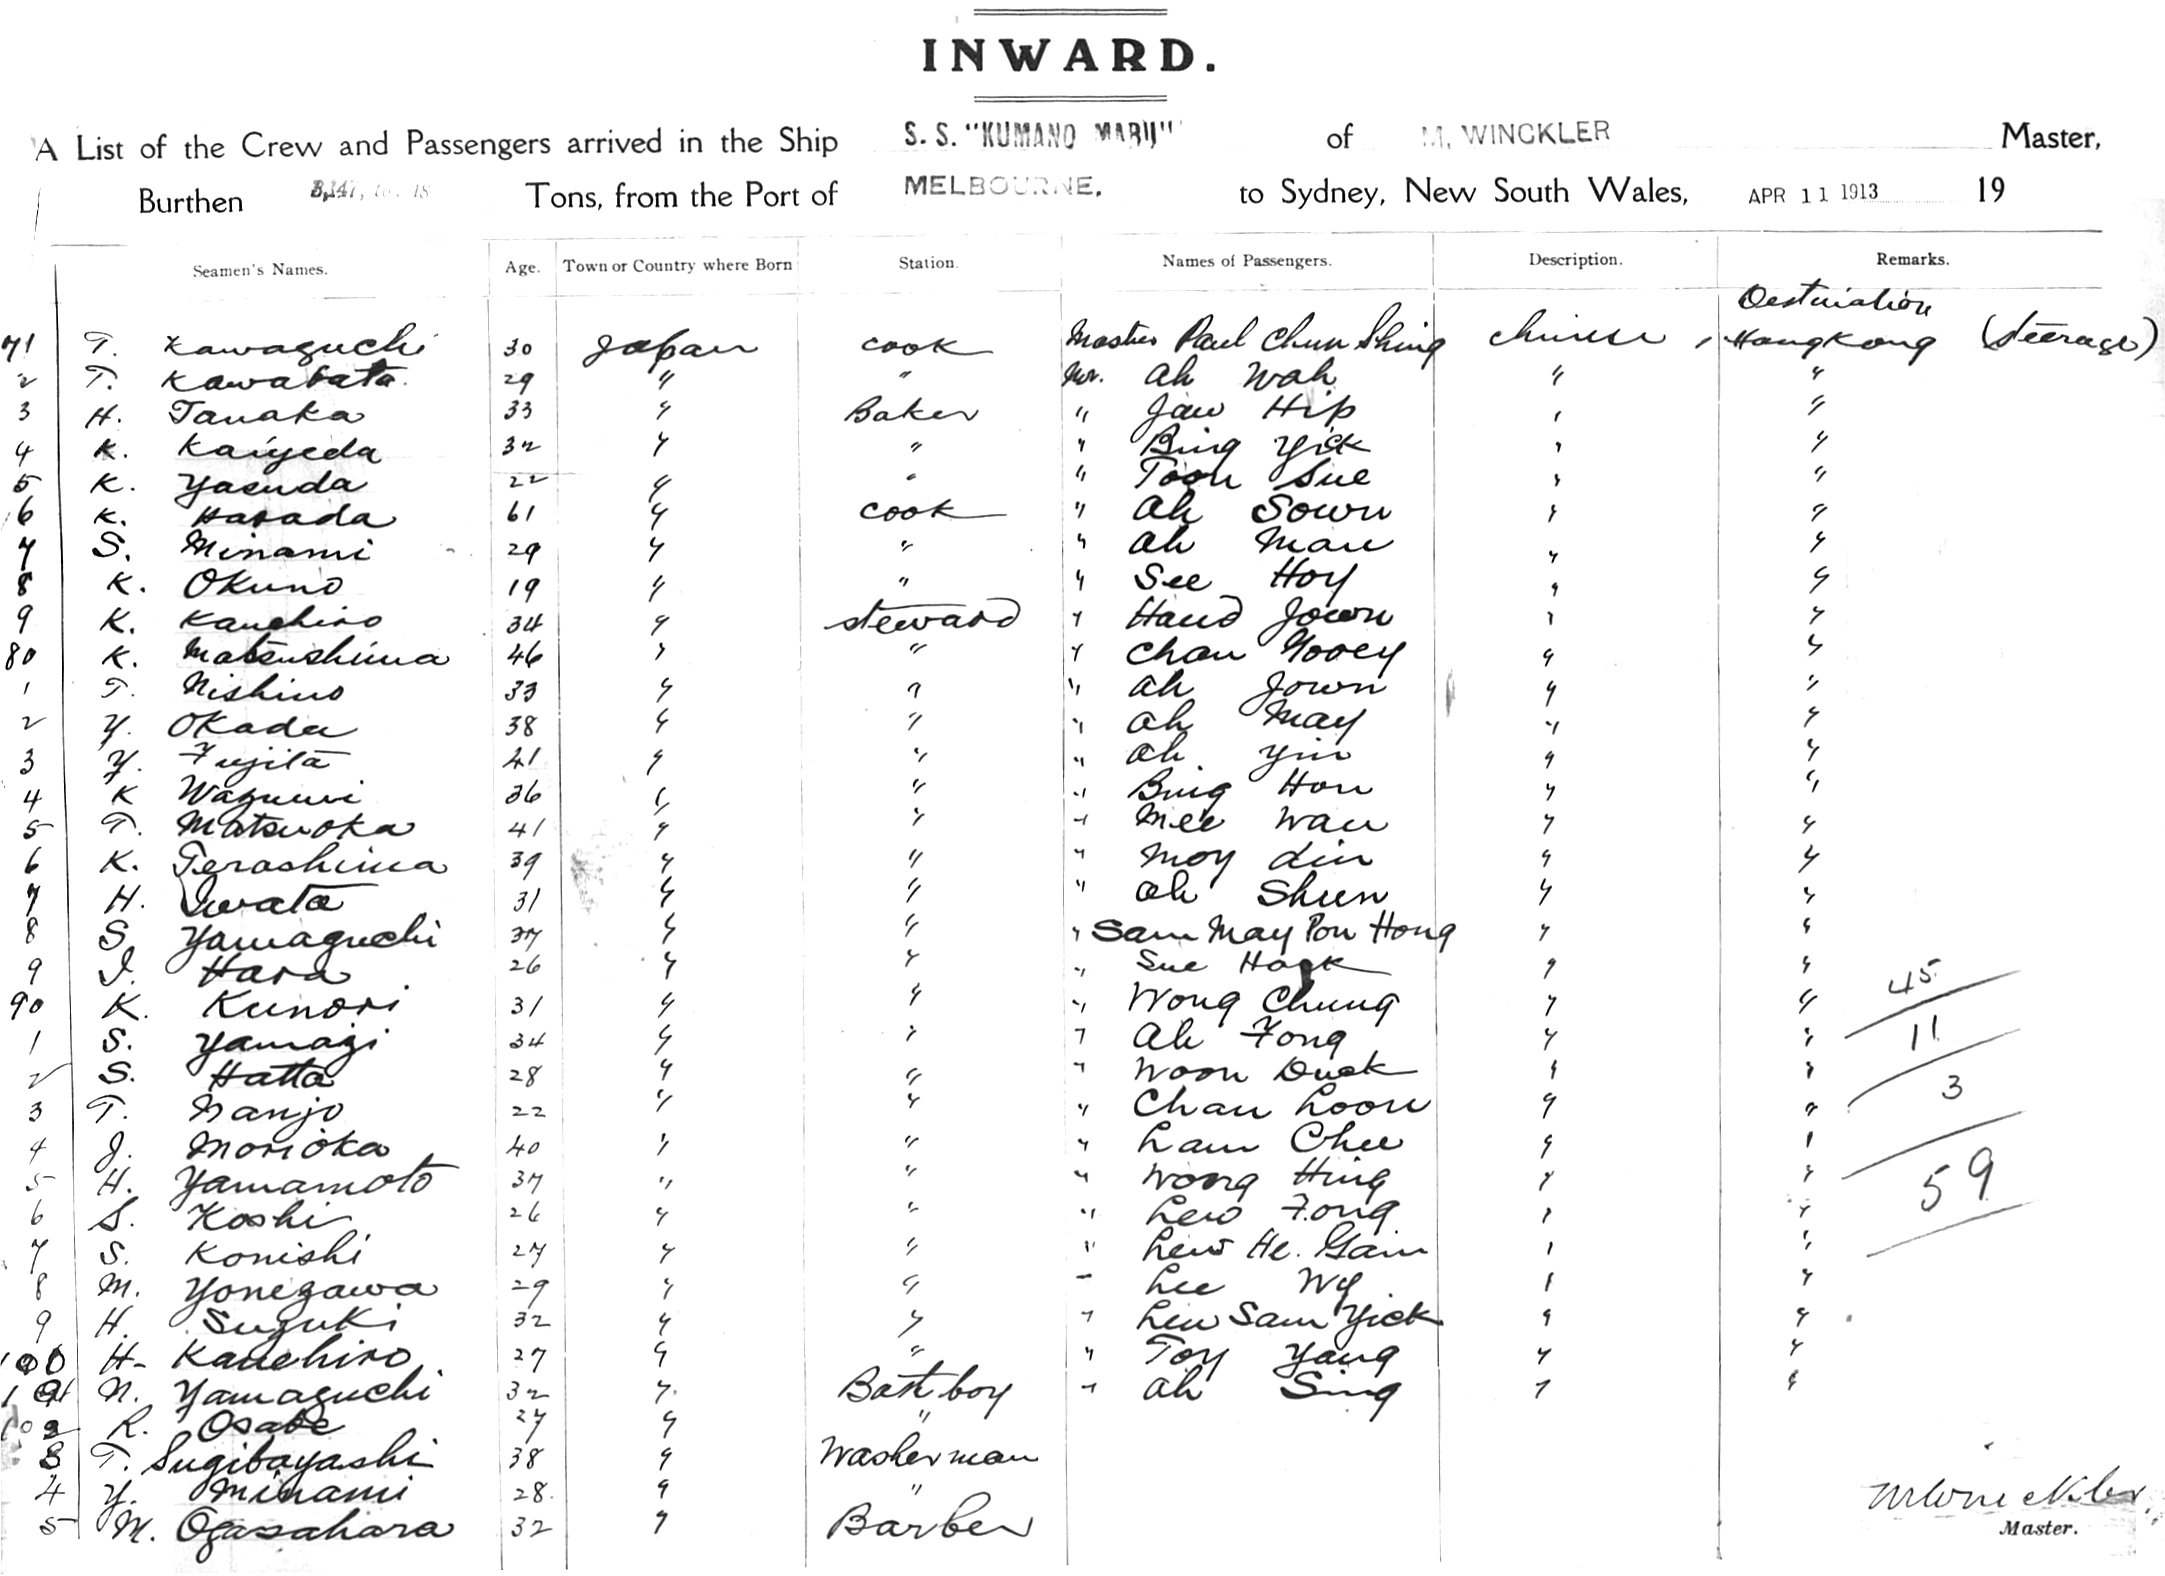 INWARD.
A List of the Crew and Passengers arrived in the Ship S. S. "KUMANO MARU" of M. WINCKLER Master,
Burthen Tons, from the Port of MELBOURNE, to Sydney, New South Wales, APR 11 1913 19
Seamen's Names. Age. Town or Country where Born Station. Names of Passengers. Description. Remarks.
Destination
71 T. Kawaguchi 30 Japan cook Master Paul Chun Shing chinese , Hongkong (Steerage)
2 T. Kawabata 29 " " Mr. Ah Wah " "
3 H. Tanaka 33 " Baker " Jaw Hip " "
4 K. Kaiyeda 32 " " " Bing Yick " "
5 K. Yasuda 22 " " " Toon Sue " "
6 K. Harada 61 " cook " Ah Sown " "
7 S. Minami 29 " " " Ah Man " "
8 K. Okuno 19 " " " See Hoy " "
9 K. Kanehiro 34 " steward " Hand Jown " "
80 K. Matsushima 46 " " " Chan Gooey " "
1 T. Nishino 33 " " " Ah Jown " "
2 Y. Okada 38 " " " Ah May " "
3 Y. Fujita 41 " " " Ah Yin " "
4 K Wazumi 36 " " " Bing Hon " "
5 T. Matsuoka 41 " " " Mee Wan " "
6 K. Terashima 39 " " " Moy Lin " "
7 H. Iwata 31 " " " Ah Shun " "
8 S. Yamaguchi 37 " " " Sam May Pon Hong " "
9 I. Hara 26 " " " Sue Hock " " 45
90 K. Kunori 31 " " " Wong Chung " "
1 S. Yamagi 34 " " " Ah Fong " " 11
2 S. Hatta 28 " " " Woon Duck " "
3 T. Nanjo 22 " " " Chan Loon " " 3
4 J. Morioka 40 " " " Lam Chee " "
5 H. Yamamoto 37 " " " Wong Hing " " 59
6 S. Koshi 26 " " " Lew Fong " "
7 S. Konishi 27 " " " Lew He. Gain " "
8 M. Yonezawa 29 " " " Lee Wy " "
9 H. Suzuki 32 " " " Lew Sam Yick " "
100 H. Kanehiro 27 " " " Toy Yang " "
101 N. Yamaguchi 32 " Bath boy " Ah Sing " "
102 R. Osabe 27 " "
3 T. Sugibayashi 38 " Washerman
4 Y. Minami 28. " "
5 M. Ogasahara 32 " Barber
M Winckler
Master.